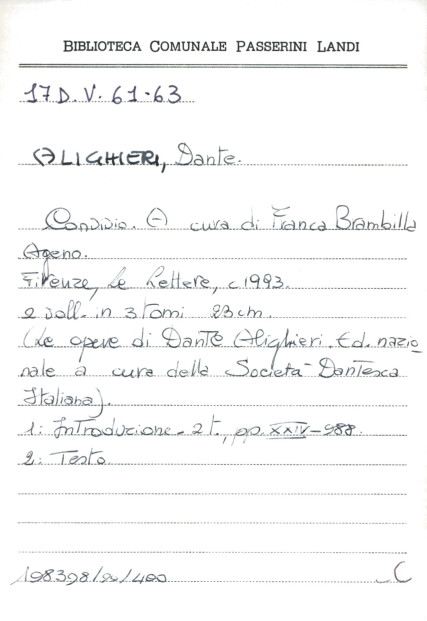 BIBLIOTECA COMUNALE PASSERINI LANDI
17D. V. 61-63
ALIGHIERI, Dante.
Convivio. A cura di Franca Brambilla
Ageno.
Firenze, Le Lettere, c1993.
2 voll. in 3 tomi 23 cm.
(Le opere di Dante Alighieri. Ed. nazio
nale a cura della Società Dantesca
Italiana).
1: Introduzione - 2 t., pp. XXIV-988.
2: Testo.
198398/99/400
C